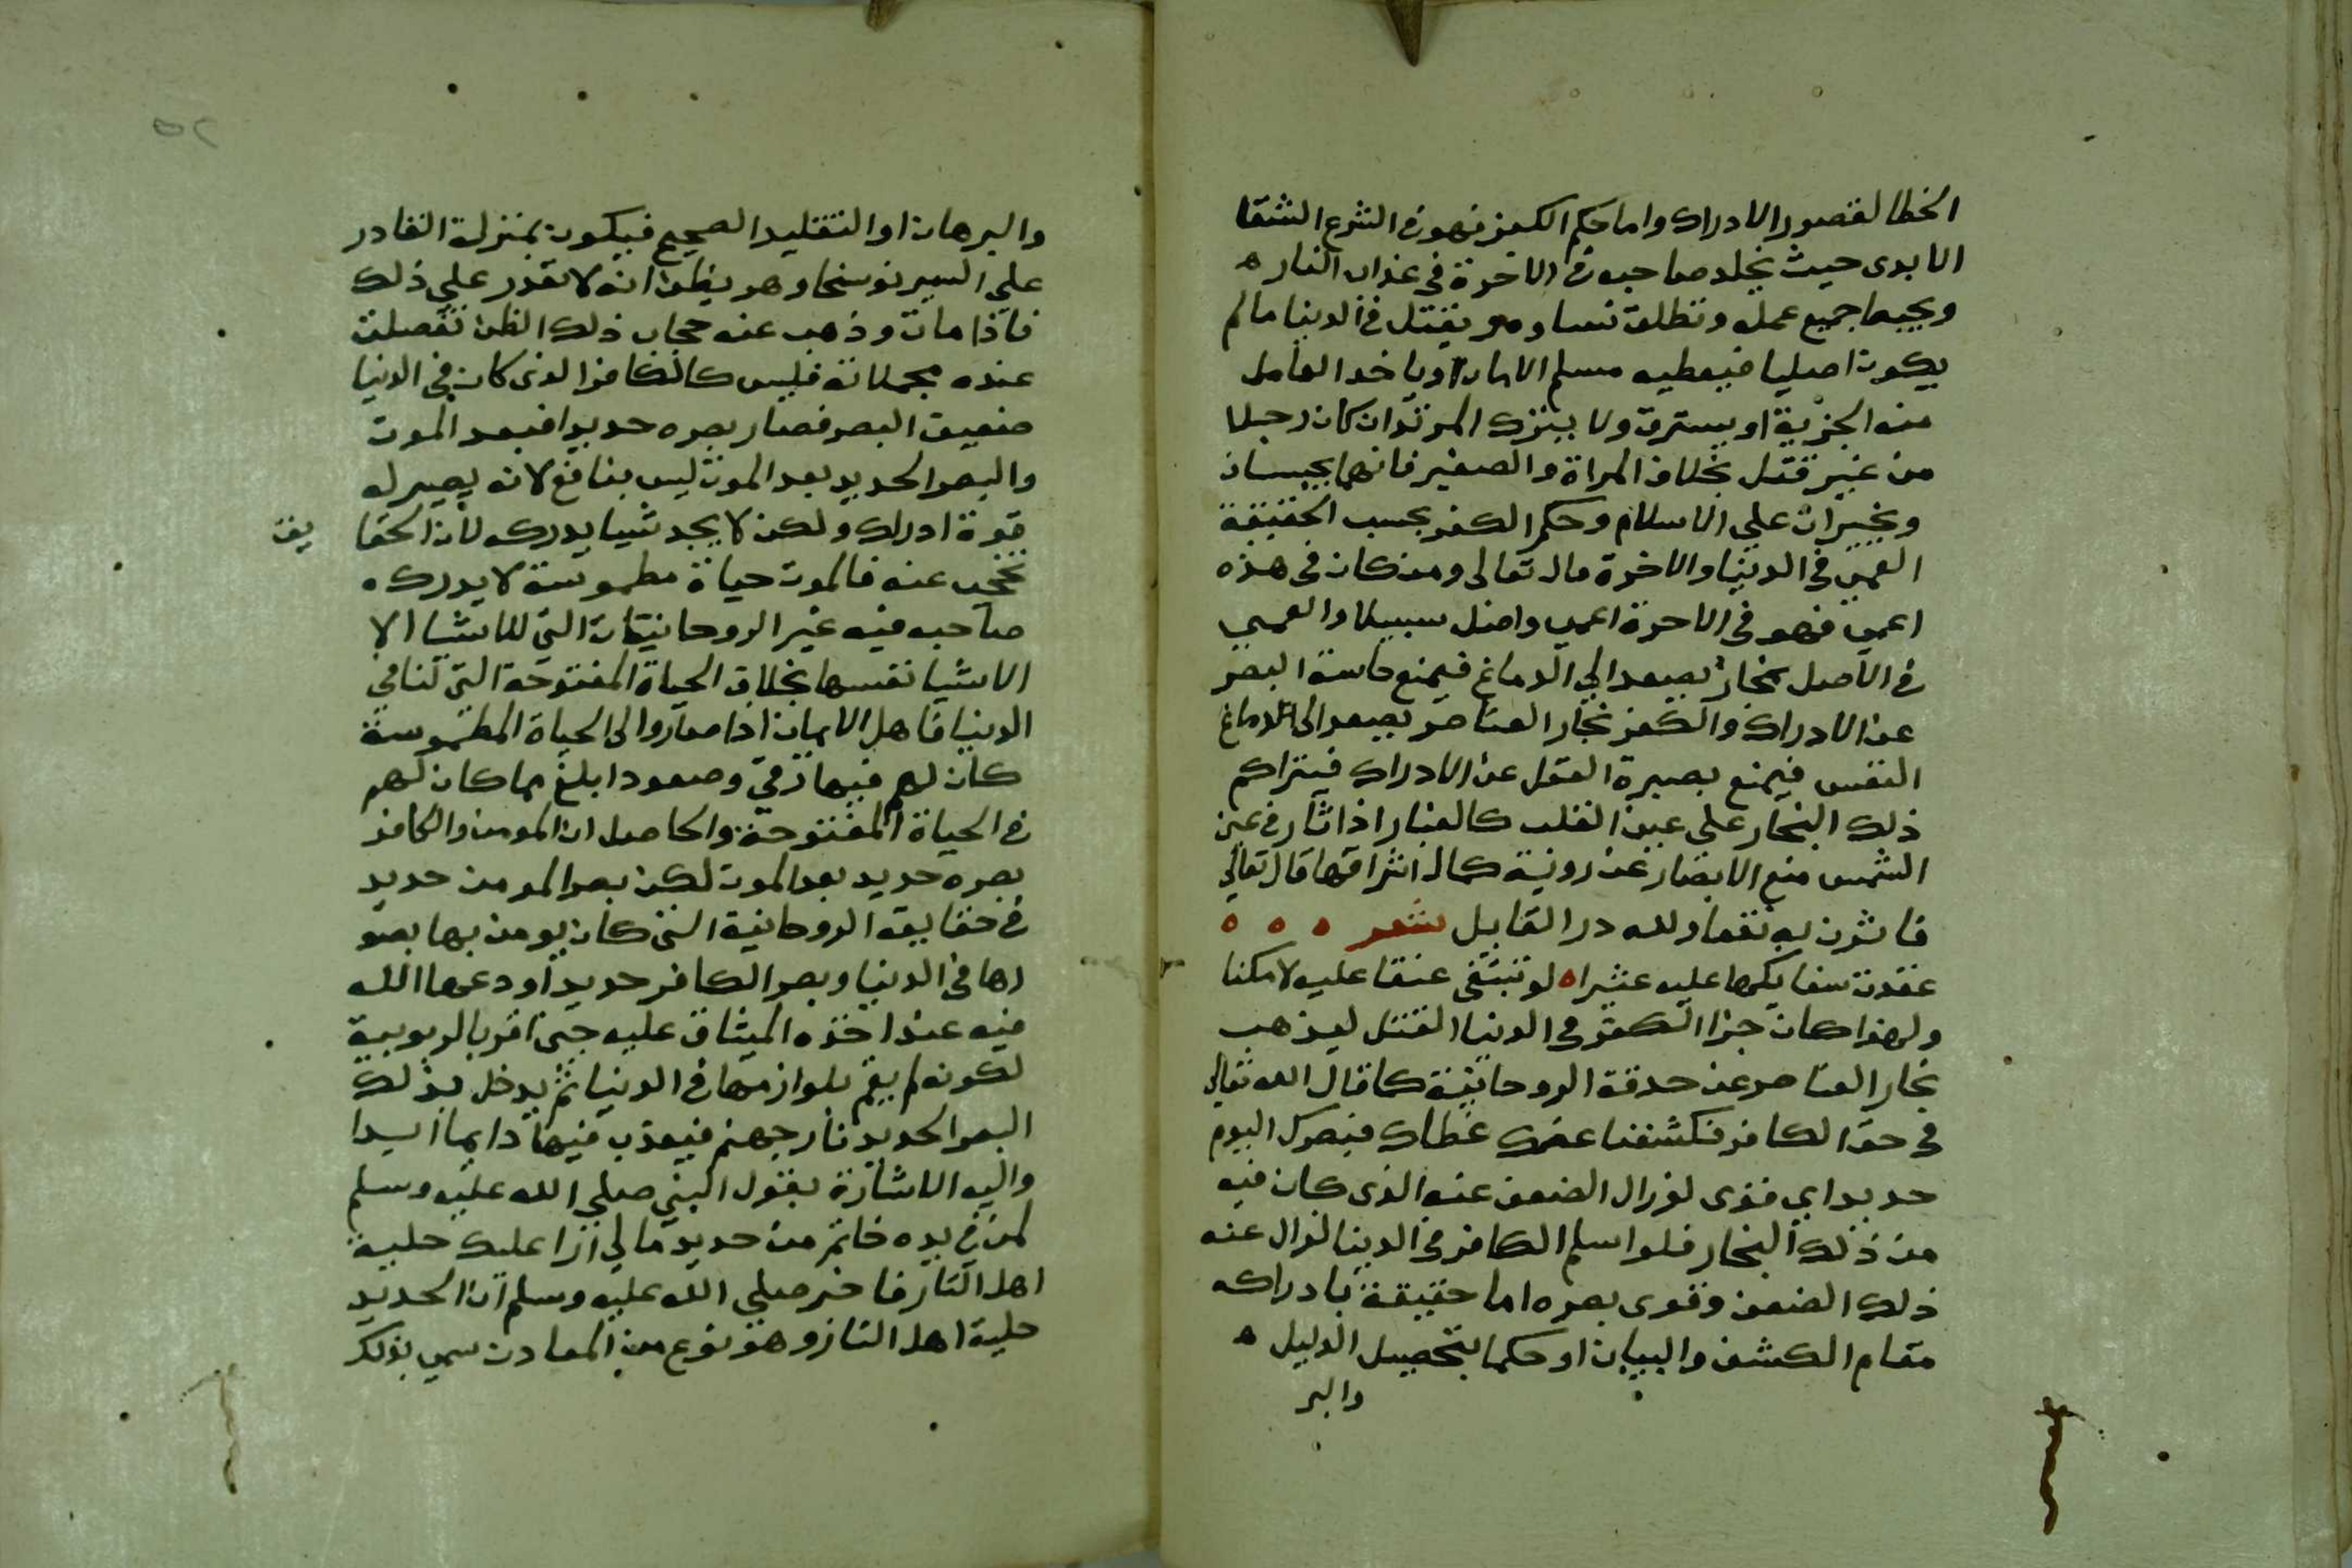 الخطا لقصور الادراك واما حكم الكفر فهو في الشرع الشقا
الابدى حيث يخلد صاحبه في الاخرة في عذاب النار ه
ويحبط جميع عمله وتطلق نساوه ويقتل في الدنيا ما لم
يكون اصليا فيعطيه مسلم الامان او ياخد العامل
منه الجزية او يسترق ولا يترك المرتد ان كان رجلا
من غير قتل بخلاف المراة والصغير فانهما يحبسان
ويجبران على الاسلام وحكم الكفر بحسب الحقيقة
العمى في الدنيا والاخرة قال تعالى ومن كان في هذه
اعمى فهو في الاخرة اعمى واضل سبيلا والعمى
في الاصل بخار يصعد الى الدماغ فيمنع حاسة البصر
عن الادراك والكفر بخار العناصر يصعد الى الدماغ
النفس فيمنع بصيرة العقل عن الادراك فيتراكم
ذلك البخار على عين القلب كالغبار اذا ثار في عين
الشمس منع الابصار عن روية كمال اشراقها قال تعالى
فاثرن به نقعا ولله در القايل شعر ه ه ه
عقدت سنابكها عليه عثيرا ه لو تبتغى عنقا عليه لامكنا
ولهذا كان جزا الكفر في الدنيا القتل ليذهب
بخار العناصر عن حدقة الروحانية كما قال الله تعالى
في حق الكافر فكشفنا عنك غطاك فبصرك اليوم
حديد اي قوى لزوال الضعف عنه الذى كان فيه
من ذلك البخار فلو اسلم الكافر في الدنيا لزال عنه
ذلك الضعف وقوى بصره اما حقيقة بادراكه
مقام الكشف والبيان او حكما بتحصيل الدليل ه
والبر
٥٢
والبرهان او التقليد الصحيح فيكون بمنزلة القادر
على السير نوسخا وهو يظن انه لا يقدر على ذلك
فاذا مات وذهب عنه حجاب ذلك الظن تفصلت
عنده مجملاته فليس كالكافر الذى كان في الدنيا
ضعيف البصر فصار بصره حديدا فبعد الموت
والبصر الحديد بعد الموت ليس بنافع لانه يصير له
قوة ادراك ولكن لا يجد شيا يدركه لان الحقا يق
تحجب عنه فالموت حياة مطموسة لا يدرك ه
صاحبه فيه غير الروحانيات التي للاشيا لا
الاشيا نفسها بخلاف الحياة المفتوحة التي لنا في
الدنيا فاهل الايمان اذا صاروا الى الحياة المطموسة
كان لهم فيها ترقي وصعودا بلغ مما كان لهم
في الحياة المفتوحة والحاصل ان المومن والكافر
بصره حديد بعد الموت لكن بصر المومن حديد
في حقايقه الروحانية التى كان يومن بها بصو
رها في الدنيا وبصر الكافر حديد اودعها الله
فيه عند اخذه الميثاق عليه حين اقر بالربوبية
لكونه لم يقم بلوازمها في الدنيا ثم يدخل بذلك
البصر الحديد نار جهنم فيعذب فيها دايما ابدا
واليه الاشارة بقول النبي صلي الله عليه وسلم
لمن في يده خاتم من حديد مالي ارا عليك حلية
اهل النار فاخبر صلي الله عليه وسلم ان الحديد
حلية اهل النار وهو نوع من المعادن سمي بذلك